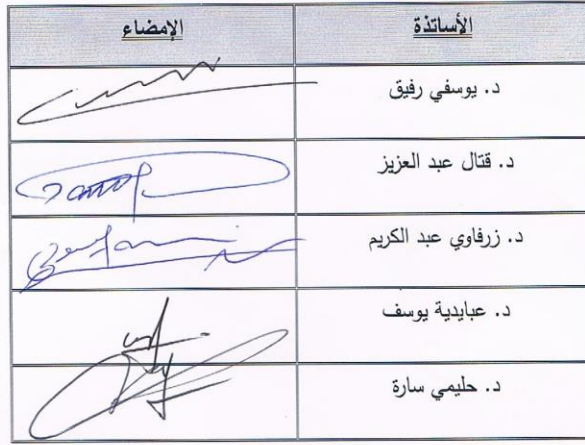 الأساتذة الإمضاء
د. يوسفي رفيق
د. قتال عبد العزيز
د. زرفاوي عبد الكريم
د. عبايدية يوسف
د. حليمي سارة